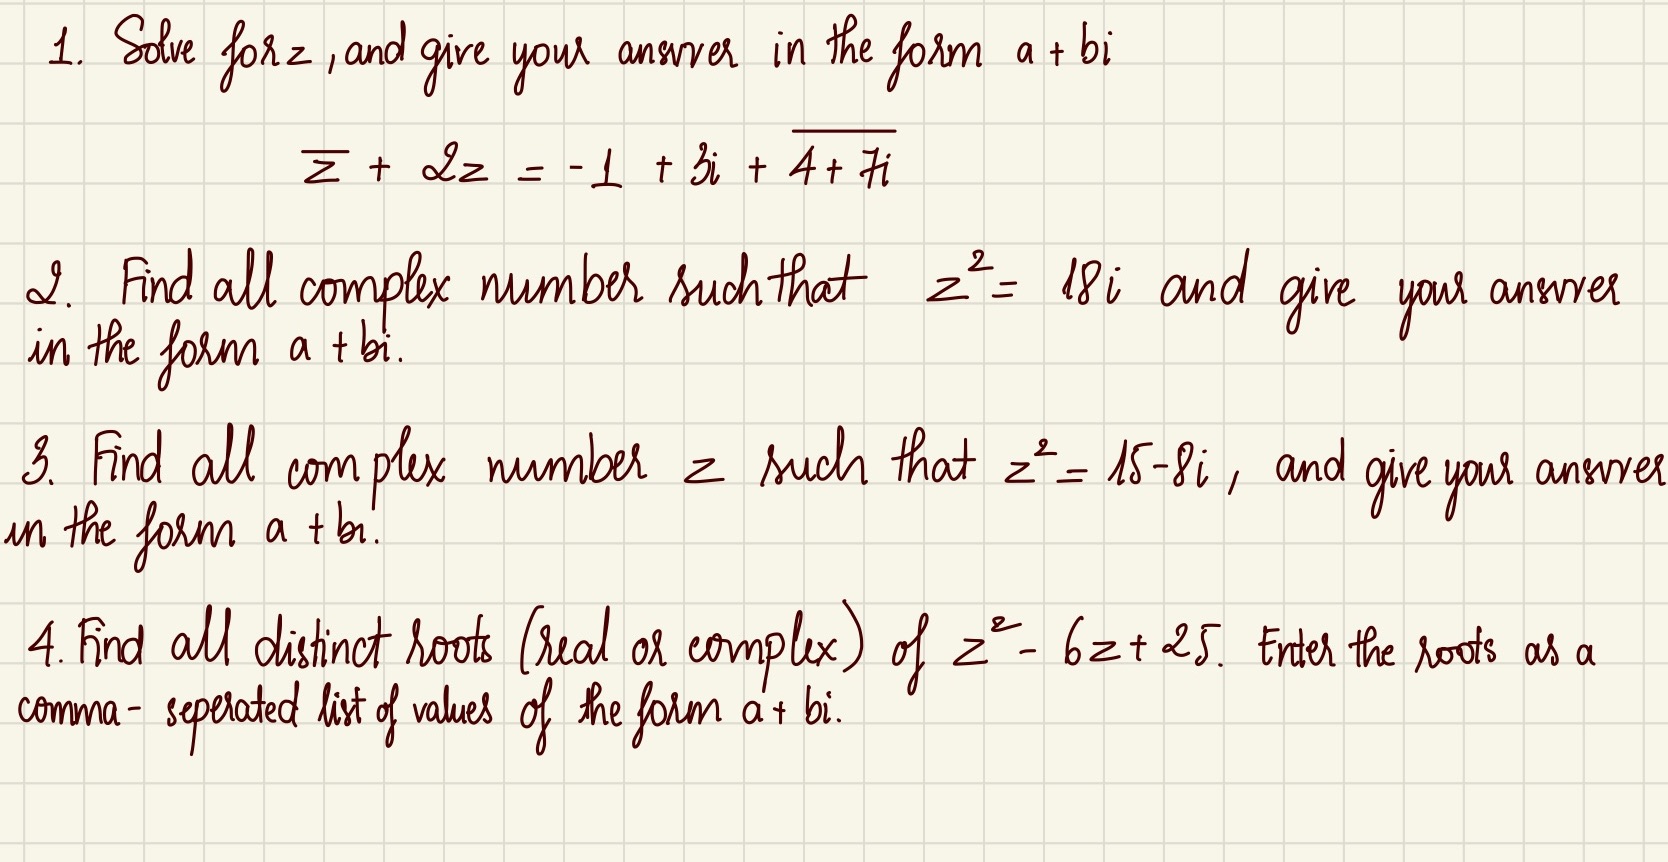 1. Solve for z, and give your answer in the form a + bi
z̅ + 2z = -1 + 3i + 4 + 7i̅
2. Find all complex number such that z² = 18i and give your answer
in the form a + bi.
3. Find all complex number z such that z² = 15-8i, and give your answer
in the form a + bi.
4. Find all distinct roots (real or complex) of z² - 6z + 25. Enter the roots as a
comma- seperated list of values of the form a + bi.